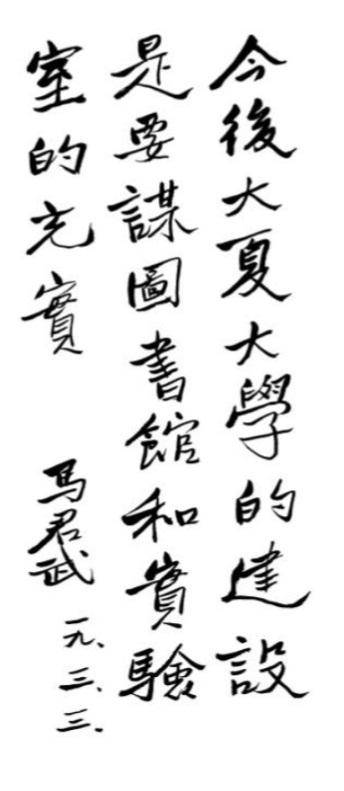 今後大夏大學的建設
是要謀圖書館和實驗
室的充實
馬君武
一九、三、三、